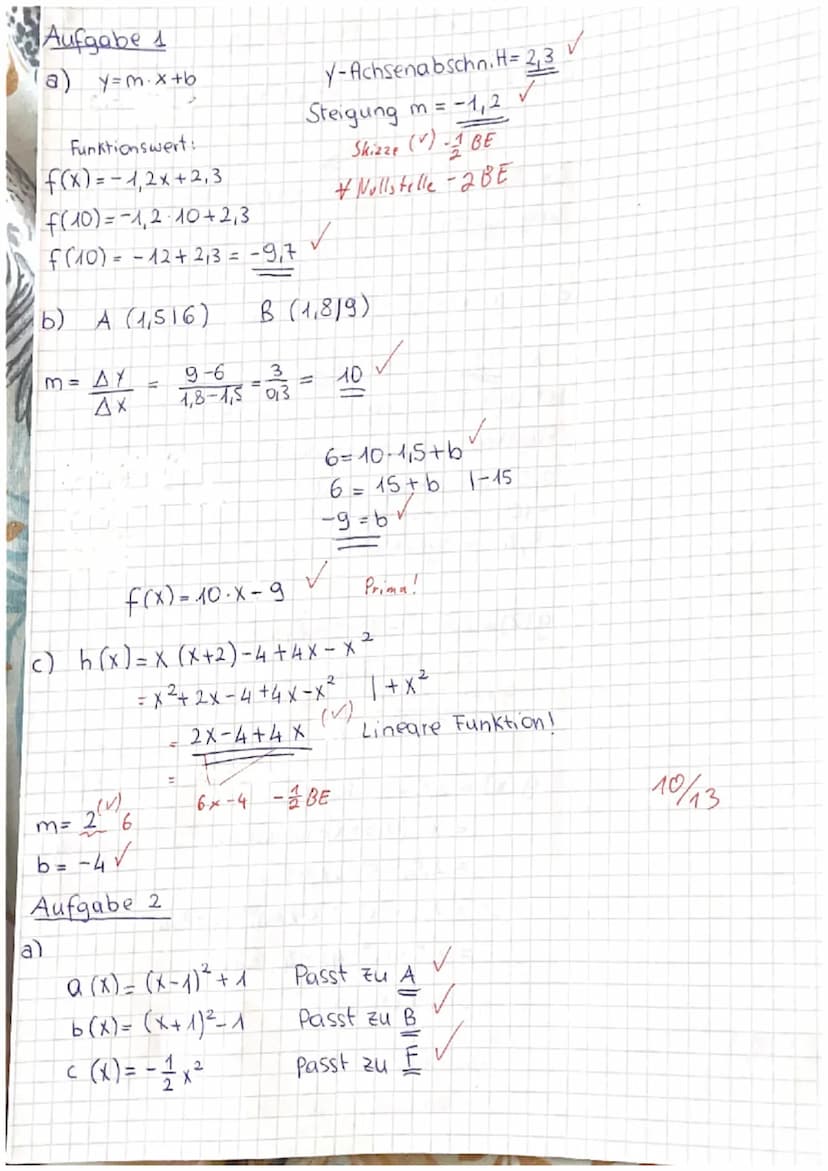 Aufgabe 1
a) y=m·x+b
y-Achsenabschn. H= 2,3 ✓
Steigung m = -1,2 ✓
Skizze (✓) -1/2 BE
Nullstelle -2BE
Funktionswert:
f(x)= -1,2x+2,3
f(10)=-1,2·10+2,3
f(10)= -12+2,3 = -9,7 ✓
b) A (1,5|6) B (1,8|9)
m= Δy/Δx = 9-6/1,8-1,5 = 3/0,3 = 10 ✓
6=10·1,5+b ✓
6 = 15+b |-15
-9=b ✓
f(x)=10·x-9 ✓ Prima!
c) h(x)= x (x+2)-4+4x-x²
= x²+2x-4+4x-x² |+x²
= 2x-4+4x (✓) Lineare Funktion!
=
6x-4 -1/2 BE
10/13
m= 2 (✓) 6
b= -4 ✓
Aufgabe 2
a)
a(x)= (x-1)²+1 Passt zu A ✓
b(x)= (x+1)²-1 Passt zu B ✓
c(x)= -1/2 x² Passt zu F ✓